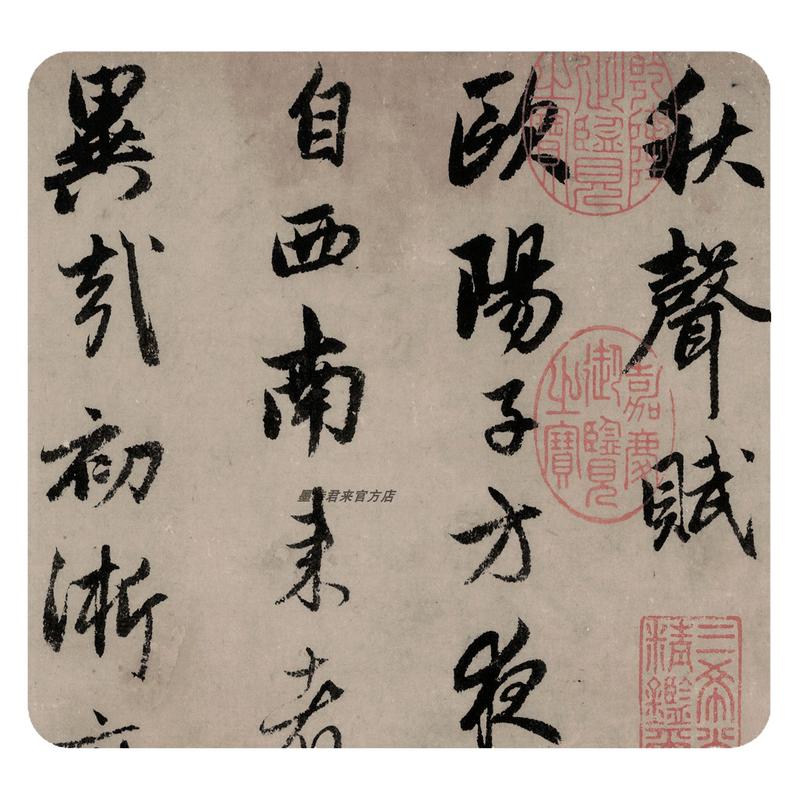 秋聲賦
歐陽子方夜
自西南来者
異哉初淅
乾隆御覽之寶
嘉慶御覽之寶
三希堂精鑑璽
君来官方店